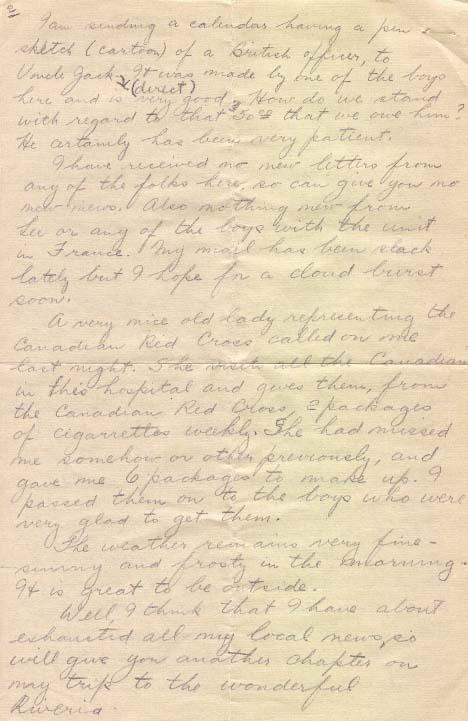 2
I am sending a calendar having a pen
sketch (cartoon) of a British officer, to
Uncle Jack (direct). It was made by one of the boys
here and is very good. How do we stand
with regard to that $50 00 that we owe him?
He certainly has been very patient.
I have received no new letters from
any of the folks here, so can give you no
new news. Also nothing new from
Lee or any of the boys with the unit
in France. My mail has been slack
lately but I hope for a cloud burst
soon.
A very nice old lady representing the
Canadian Red Cross called on me
last night. She visits all the Canadians
in this hospital and gives them, from
the Canadian Red Cross, 2 packages
of cigarrettes weekly. She had missed
me somehow or other previously, and
gave me 6 packages to make up. I
passed them on to the boys who were
very glad to get them.
The weather remains very fine -
sunny and frosty in the morning.
It is great to be outside.
Well, I think that I have about
exhausted all my local news, so
will give you another chapter on
my trip to the wonderful
Riveria.